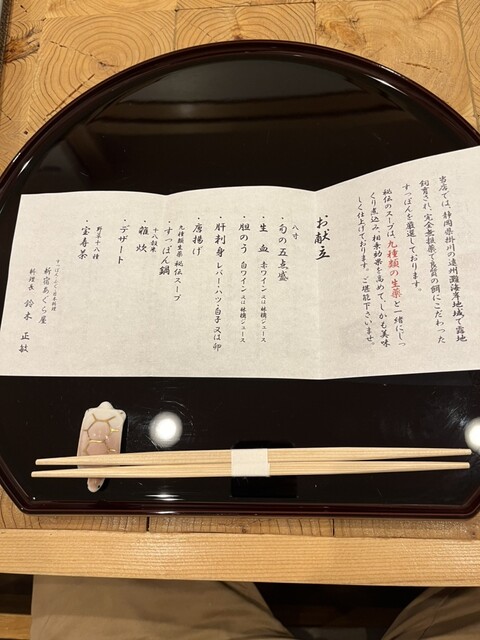 当店では、静岡県掛川の遠州灘海岸地域で露地
飼育され、完全無投薬で良質の餌にこだわった
すっぽんを厳選しております。
秘伝のスープは、九種類の生薬と一緒にじっ
くり煮込み、相乗効果を高めて、しかも美味
しく仕上げております。ご堪能下さいませ。
お献立
八寸
・旬の五点盛
・生血 赤ワイン又は林檎ジュース
・胆のう 白ワイン又は林檎ジュース
・肝刺身 レバー・ハツ・白子又は卵
・唐揚げ
九種類生薬 秘伝スープ
・すっぽん鍋
十八穀米
・雑炊
・デザート
野草十八種
・宝寿茶
すっぽん・ふぐ・日本料理
新宿あくら屋
料理長 鈴木 正敏